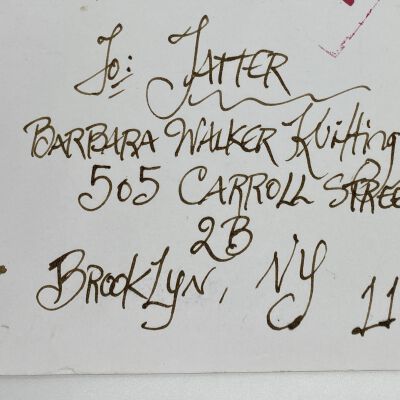 To: TATTER
BARBARA WALKER Knitting
505 CARROLL STREE
2B
BROOKLYN, NY 11